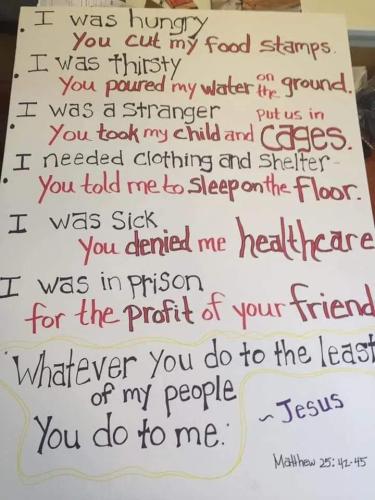 I was hungry
You cut my food stamps.
I was thirsty
You poured my water on the ground.
I was a stranger
You took my child and put us in cages.
I needed clothing and shelter-
You told me to sleep on the floor.
I was sick
You denied me healthcare
I was in prison
for the profit of your friend
"Whatever you do to the least
of my people
You do to me."
~Jesus
Matthew 25: 42-45